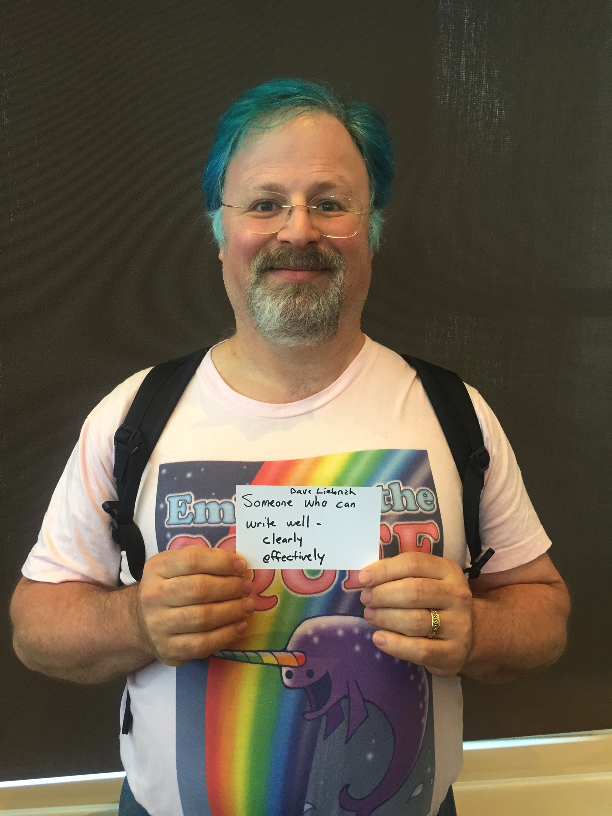 Dave Liebnzh
Someone who can
write well -
clearly
effectively
Em the